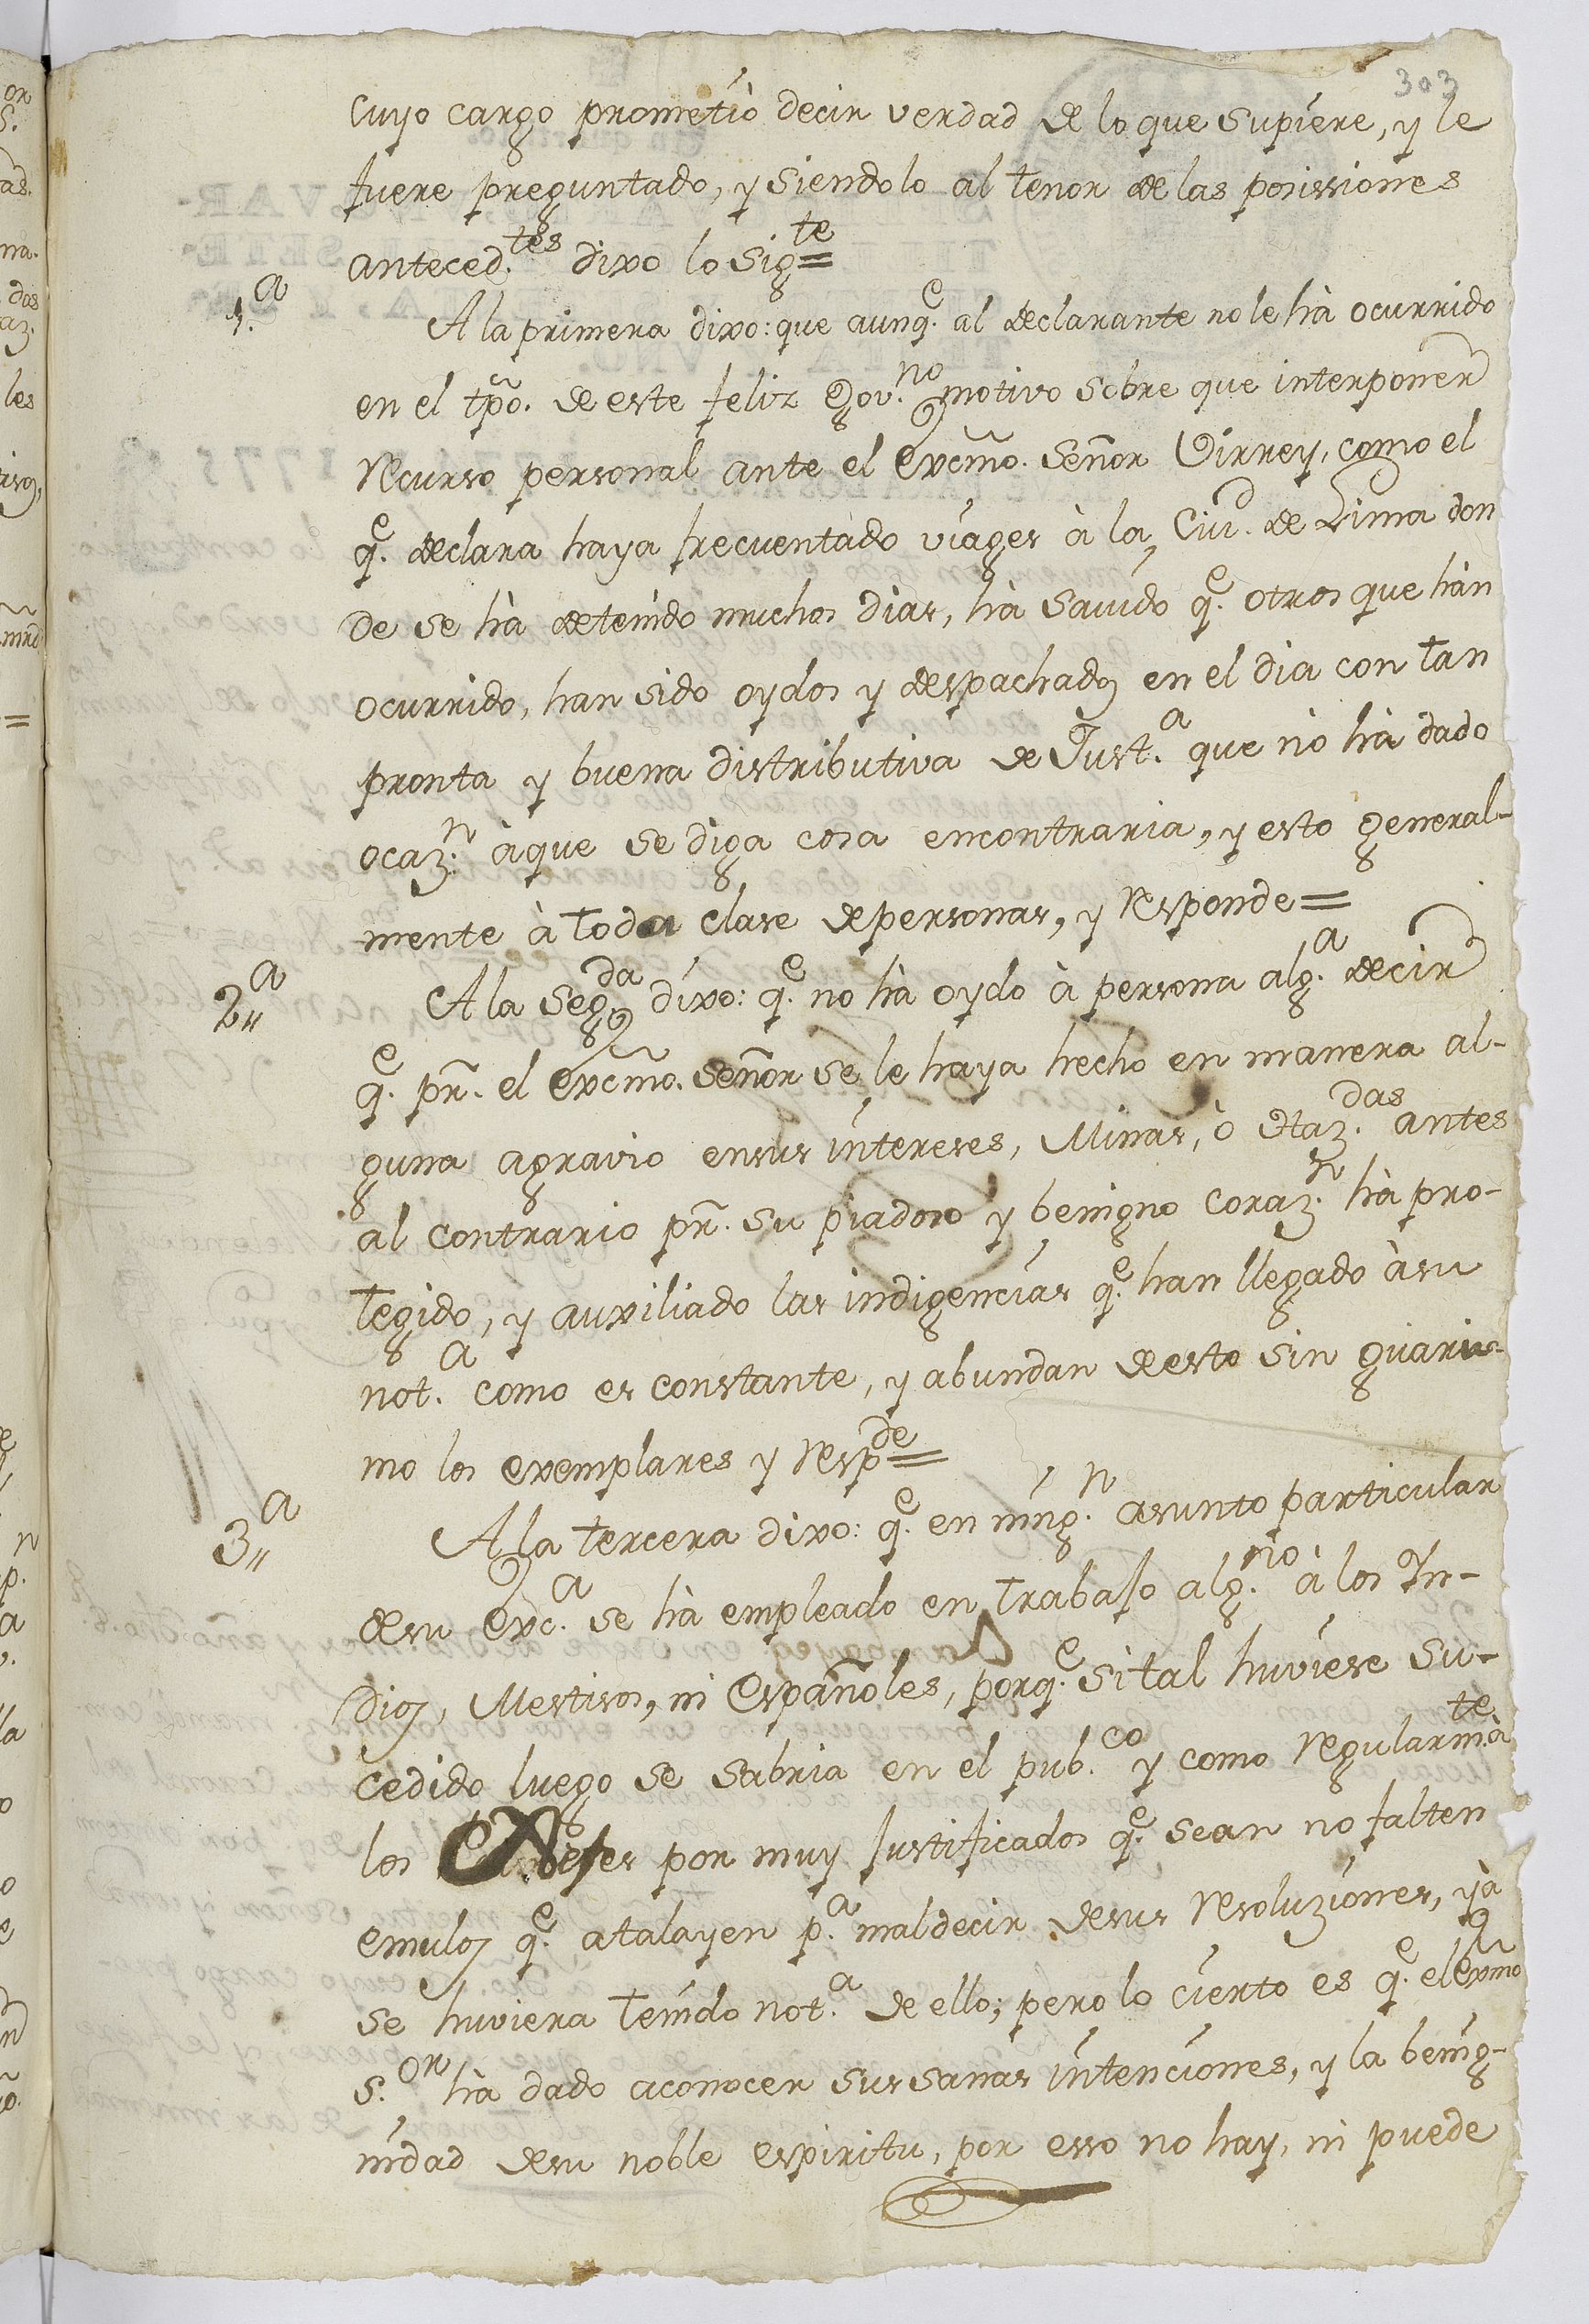 303
cuyo cargo prometiò decir verdad de lo que supiere, y le
fuere preguntado, y siendolo al tenor de las posissiones
anteced.tes dixo lo sig.te=
1.a A la primera dixo: que aunq.e al declarante no le hà ocurrido
en el tp̃o. de este feliz Gov.no motivo sobre que interponer
recurso personal ante el Excm̃o. Señor Virrey, como el
q.e declara haya frecuentado viages à la Ciu.d de Lima don
de se hà detenido muchos dias, hà savido q.e otros que hàn
ocurrido, han sido oydos y despachados en el dia con tan
pronta y buena distributiva de Just.a que nò hà dado
ocaz.n àque se diga cosa encontraria, y esto general-
mente à toda clase de personas, y responde=
2.a A la seg.da dixo: q.e no hà oydo à persona alg.a decir
q.e pr̃. el Excm̃o. Señor se le haya hecho en manera al-
guna agravio ensus intereses, Minas, ò Haz.das antes
al contrario pr̃. su piadoso y benigno coraz.n hà pro-
tegido, y auxiliado las indigencias q.e han llegado àsu
not.a como es constante, y abundan de esto sin guaris-
mo los exemplares y resp.de=
3.a A la tercera dixo: q.e en ning.n asunto particular
desu Exc.a se hà empleado en trabajo alg.no à los In-
dios, Mestisos, ni Españoles, porq.e si tal huviese su-
cedido luego se sabria en el pub.co y como regularm.te à
los Xefes por muy justificados q.e sean no falten
emulos q.e atalayen p.a maldecir desus resoluziones, yà
se huviera tenido not.a de ello; pero lo cierto es q.e el Exm̃o
s.or hà dado aconocer sus sanas intenciones, y la benig-
nidad desu noble espiritu, por esso no hay, ni puede